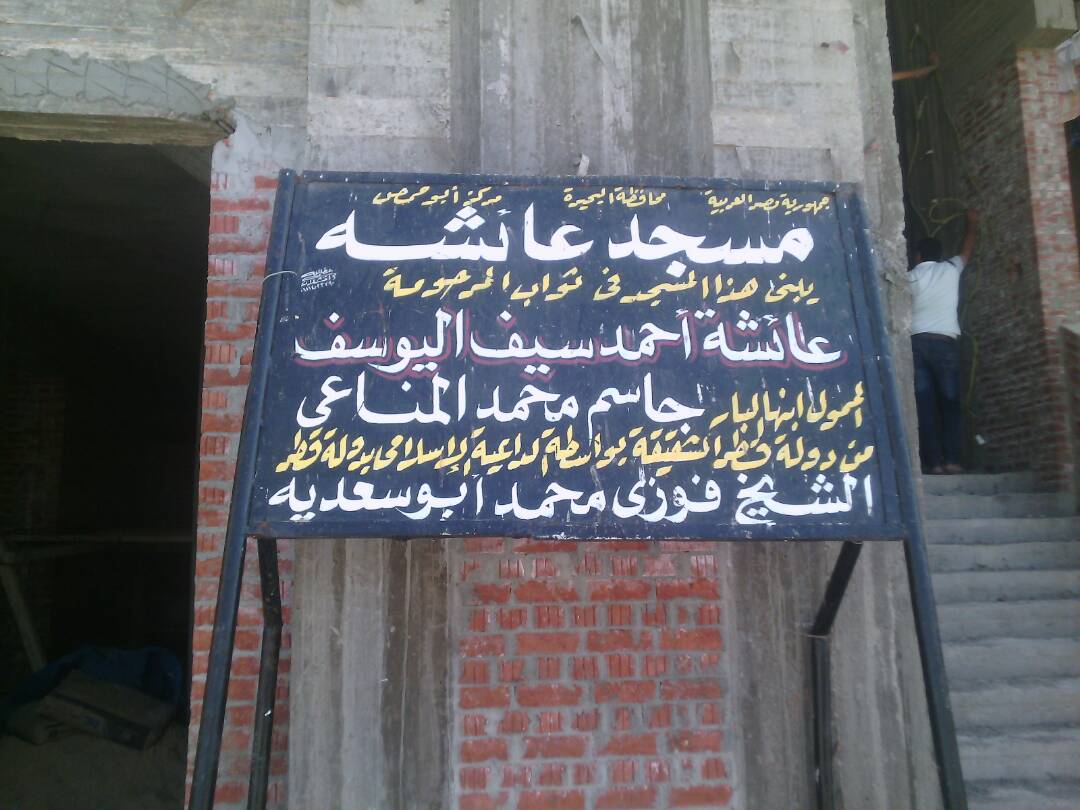 جمهورية مصر العربية محافظة البحيرة مركز أبو حمص
مسجد عائشه
يبنى هذا المسجد فى ثواب المرحومة
عائشة أحمد سيف اليوسف
الممول ابنها البار جاسم محمد المناعى
من دولة قطر الشقيقة بواسطة الداعية الإسلامى بدولة قطر
الشيخ فوزى محمد أبو سعديه